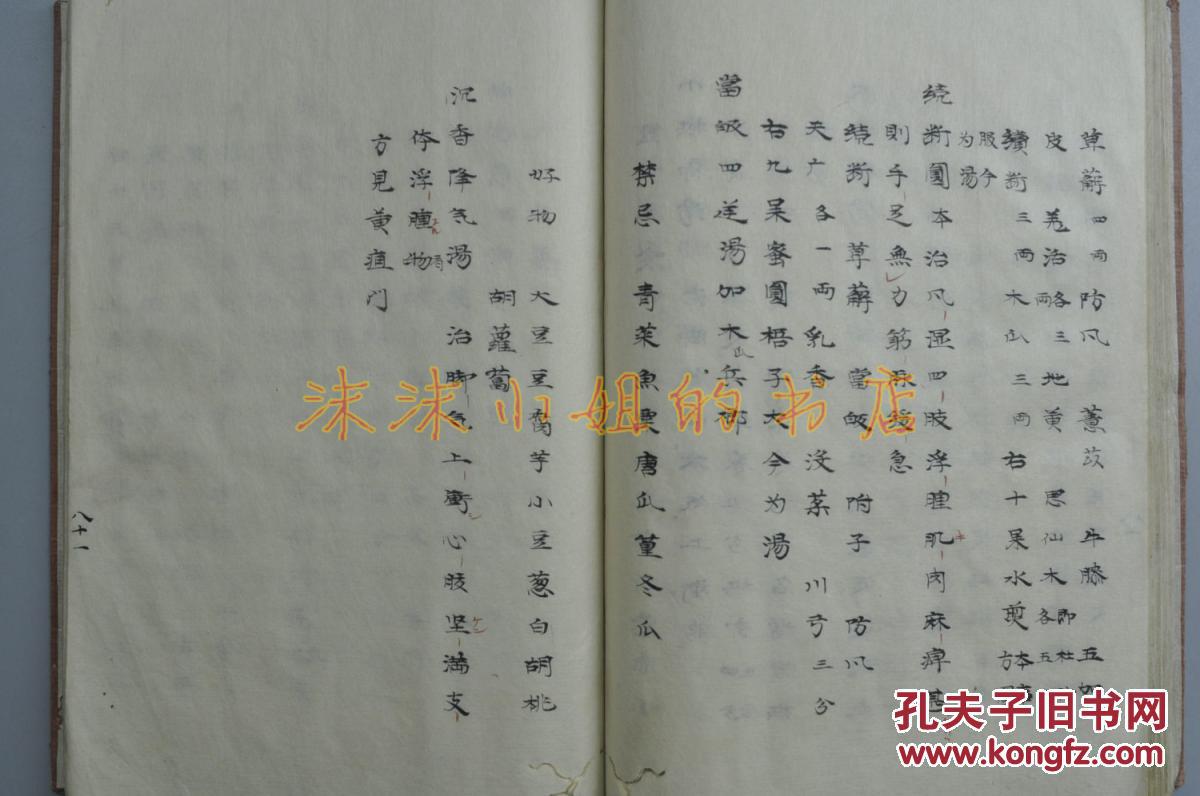 草薢四兩防风 薏苡 牛膝 五加
皮 羌活各三兩 地黄 思仙木即杜 各五
續断三兩木瓜三兩右十味水煎本
服今为湯
续断圓本治风湿四肢浮腫肌肉麻痺甚
則手足無力筋脉緩急
续断 草薢 當皈 附子 防风
天广各一兩 乳香 沒菜 川芎三分
右九味蜜圓梧子大今为湯
當皈四逆湯加木瓜兵榔
禁忌 青菜魚 唐瓜菫冬瓜
好物 大豆豆腐芋小豆葱白胡桃
胡蘿蔔
沉香降气湯 治脚气上衝心腹坚满支
ケン
浮腫物
方見黄疸门
八十一
沫沫小姐的书店
孔夫子旧书网
www.kongfz.com